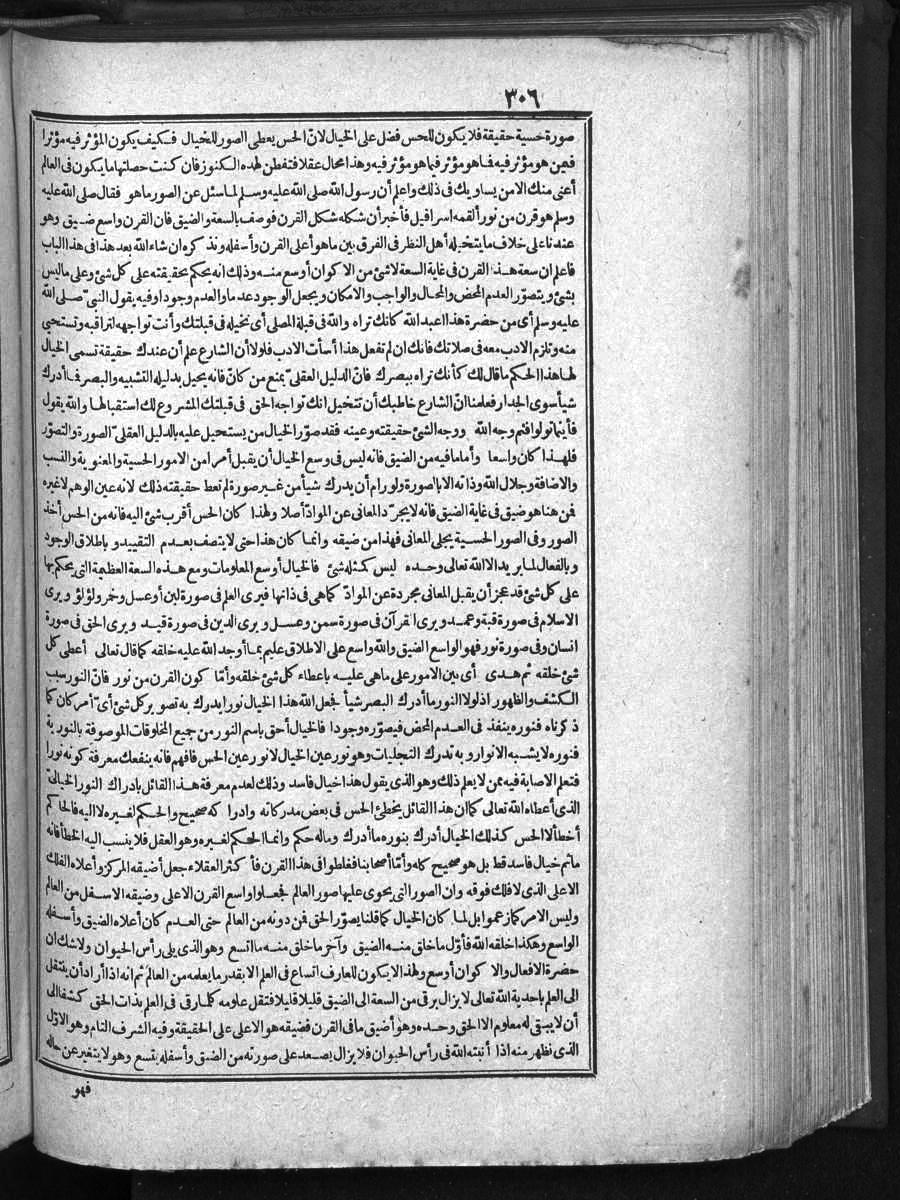 ٣٠٦
صورة حسية حقيقة فلا يكون للحس فضل على الخيال لانّ الحس يعطى الصور للخيال فكيف يكون المؤثر فيه مؤثرا
فمن هو مؤثر فيه فما هو مؤثر فيما هو مؤثر فيه وهذا محال عقلا فتفطن لهذه الكنوز فان كنت حصلتها ما يكون فى العالم
أغنى منك الامن يساويك فى ذلك واعلم أن رسول الله صلى الله عليه وسلم لما سئل عن الصور ما هو فقال صلى الله عليه
وسلم هو قرن من نور ألقمه اسرافيل فأخبر أن شكله شكل القرن فوصف بالسعة والضيق فان القرن واسع ضيق وهو
عندنا على خلاف ما يتخيله أهل النظر فى الفرق بين ما هو أعلى القرن وأسفله ونذكره ان شاء الله بعد هذا فى هذا الباب
فاعلم ان سعة هذا القرن فى غاية السعة لا شئ من الاكوان أوسع منه وذلك انه يحكم بحقيقته على كل شئ وعلى ما ليس
بشئ ويتصوّر العدم المحض والمحال والواجب والامكان ويجعل الوجود عدما والعدم وجودا وفيه يقول النبى صلى الله
عليه وسلم أى من حضرة هذا اعبد الله كانك تراه والله فى قبلة المصلى أى تخيله فى قبلتك وأنت تواجهه لتراقبه وتستحيى
منه وتلزم الادب معه فى صلاتك فانك ان لم تفعل هذا أسأت الادب فلولا أن الشارع علم أن عندك حقيقة تسمى الخيال
لها هذا الحكم ما قال لك كأنك تراه ببصرك فانّ الدليل العقلىّ يمنع من كانّ فانه يحيل بدليله التشبيه والبصر فما أدرك
شيأ سوى الجدار فعلمنا انّ الشارع خاطبك أن تتخيل انك تواجه الحق فى قبلتك المشروع لك استقبالها والله يقول
فأينما تولوا فثم وجه الله ووجه الشئ حقيقته وعينه فقد صوّر الخيال من يستحيل عليه بالدليل العقلىّ الصورة والتصوّر
فلهذا كان واسعا وأما ما فيه من الضيق فانه ليس فى وسع الخيال أن يقبل أمرا من الامور الحسية والمعنوية والنسب
والاضافة وجلال الله وذاته الا بالصورة ولو رام أن يدرك شيأ من غير صورة لم تعط حقيقته ذلك لانه عين الوهم لا غيره
فمن هنا هو ضيق فى غاية الضيق فانه لا يجرّد المعانى عن الموادّ أصلا ولهذا كان الحس أقرب شئ اليه فانه من الحس أخذ
الصور وفى الصور الحسية يجلى المعانى فهذا من ضيقه وانما كان هذا حتى لا يتصف بعدم التقييد وباطلاق الوجود
وبالفعال لما يريد الا الله تعالى وحده ليس كمثله شئ فالخيال أوسع المعلومات ومع هذه السعة العظيمة التى يحكم بها
على كل شئ قد عجز أن يقبل المعانى مجردة عن الموادّ كما هى فى ذاتها فيرى العلم فى صورة لبن أو عسل وخمر ولؤلؤ ويرى
الاسلام فى صورة قبة وعمد ويرى القرآن فى صورة سمن وعسل ويرى الدين فى صورة قيد ويرى الحق فى صورة
انسان وفى صورة نور فهو الواسع الضيق والله واسع على الاطلاق عليم بما أوجد الله عليه خلقه كما قال تعالى أعطى كل
شئ خلقه ثم هدى أى بين الامور على ما هى عليه باعطاء كل شئ خلقه وأمّا كون القرن من نور فانّ النور سبب
الكشف والظهور اذ لولا النور ما أدرك البصر شيأ فجعل الله هذا الخيال نورا يدرك به تصوير كل شئ أىّ أمر كان كما
ذكرناه فنوره ينفذ فى العدم المحض فيصوّره وجودا فالخيال أحق باسم النور من جميع المخلوقات الموصوفة بالنورية
فنوره لا يشبه الانوار وبه تدرك التجليات وهو نور عين الخيال لا نور عين الحس فافهم فانه ينفعك معرفة كونه نورا
فتعلم الاصابة فيه ممن لا يعلم ذلك وهو الذى يقول هذا خيال فاسد وذلك لعدم معرفة هذا القائل بادراك النور الخيالىّ
الذى أعطاه الله تعالى كما ان هذا القائل يخطئ الحس فى بعض مدركاته وادراكه صحيح والحكم لغيره لا اليه فالحاكم
أخطأ لا الحس كذلك الخيال أدرك بنوره ما أدرك وماله حكم وانما الحكم لغيره وهو العقل فلا ينسب اليه الخطأ فانه
ما ثم خيال فاسد قط بل هو صحيح كله وأمّا أصحابنا فغلطوا فى هذا القرن فأكثر العقلاء جعل أضيقه المركز وأعلاه الفلك
الاعلى الذى لا فلك فوقه وان الصور التى يحوى عليها صور العالم فجعلوا واسع القرن الاعلى وضيقه الاسفل من العالم
وليس الامر كما زعموا بل لما كان الخيال كما قلنا يصوّر الحق فمن دونه من العالم حتى العدم كان أعلاه الضيق وأسفله
الواسع وهكذا خلقه الله فأوّل ما خلق منه الضيق وآخر ما خلق منه ما اتسع وهو الذى يلى رأس الحيوان ولا شك ان
حضرة الافعال والاكوان أوسع ولهذا لا يكون للعارف اتساع فى العلم الا بقدر ما يعلمه من العالم ثم انه اذا أراد أن ينتقل
الى العلم باحدية الله تعالى لا يزال يرقى من السعة الى الضيق قليلا قليلا فتقل علومه كلما رقى فى العلم بذات الحق كشفا الى
أن لا يبقى له معلوم الا الحق وحده وهو أضيق ما فى القرن فضيقه هو الاعلى على الحقيقة وفيه الشرف التام وهو الاوّل
الذى نظهر منه اذا أنبته الله فى رأس الحيوان فلا يزال يصعد على صورته من الضيق وأسفله يتسع وهو لا يتغير عن حاله
فهو